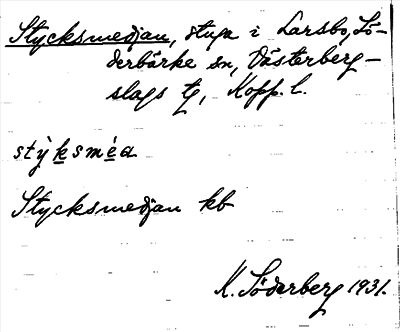 Stycksmedjan, stuga i Larsbo, Sö-
derbärke sn, Västerberg-
slags tg, Kopp. l.
stỳksmèa
Stycksmedjan kb
K. Söderberg 1931.